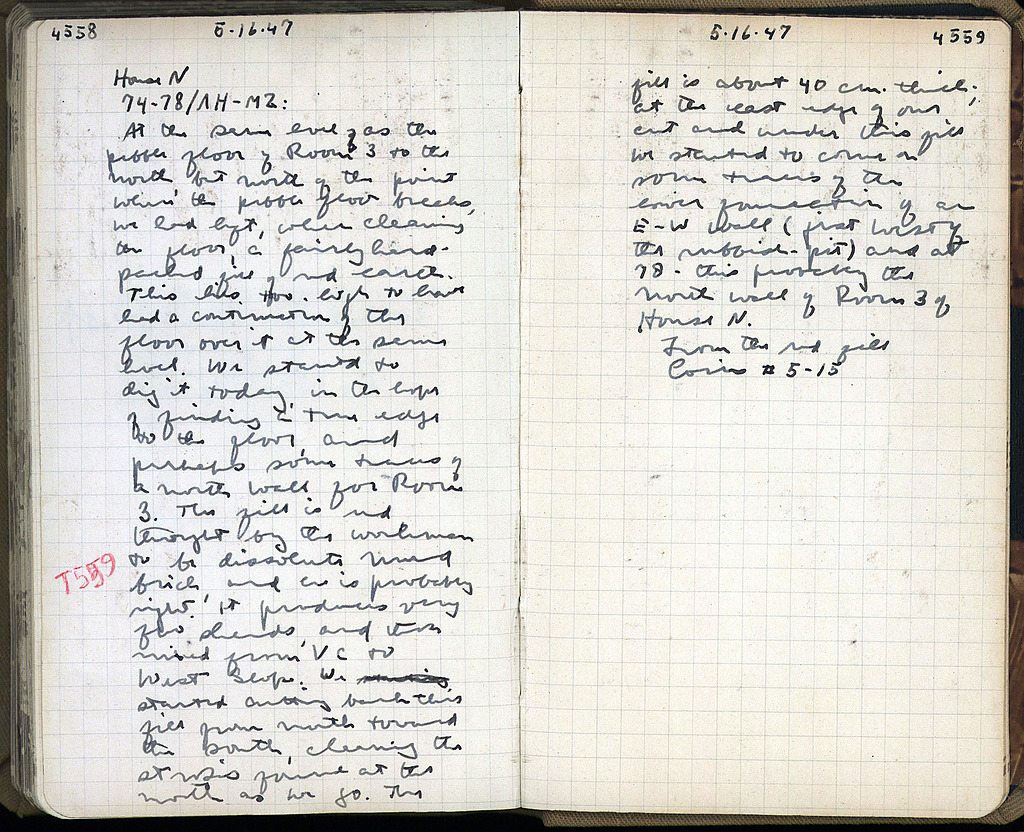 4558
5·16·47
House N
74-78/ΛH-MZ:
At the same level as the
pebble floor of Room 3 to the
north, but north of the point
where the pebble floor breaks,
we had left, when cleaning
the floor, a fairly hard-
packed fill of red earth.
This lies too high to have
had a continuation of the
floor over it at the same
level. We started to
dig it today, in the hope
of finding a true edge
to the floor, and
perhaps some traces of
a north wall for Room
3. The fill is red
thought by the workman
T559
to be dissolved mud
brick, and he is probably
right. It produces very
few sherds, and them
mixed from VC to
West Slope. We
started cutting back this
fill from north toward
the south, cleaning the
strosis found at the
north as we go. The
5·16·47
4559
fill is about 40 cm. thick;
at the east edge of our
cut and under this fill
we started to come on
some traces of the
lower foundation of an
E-W wall (just west of
the rubbish-pit) and at
78 - this probably the
north wall of Room 3 of
House N.
From the red fill
Coins # 5-15